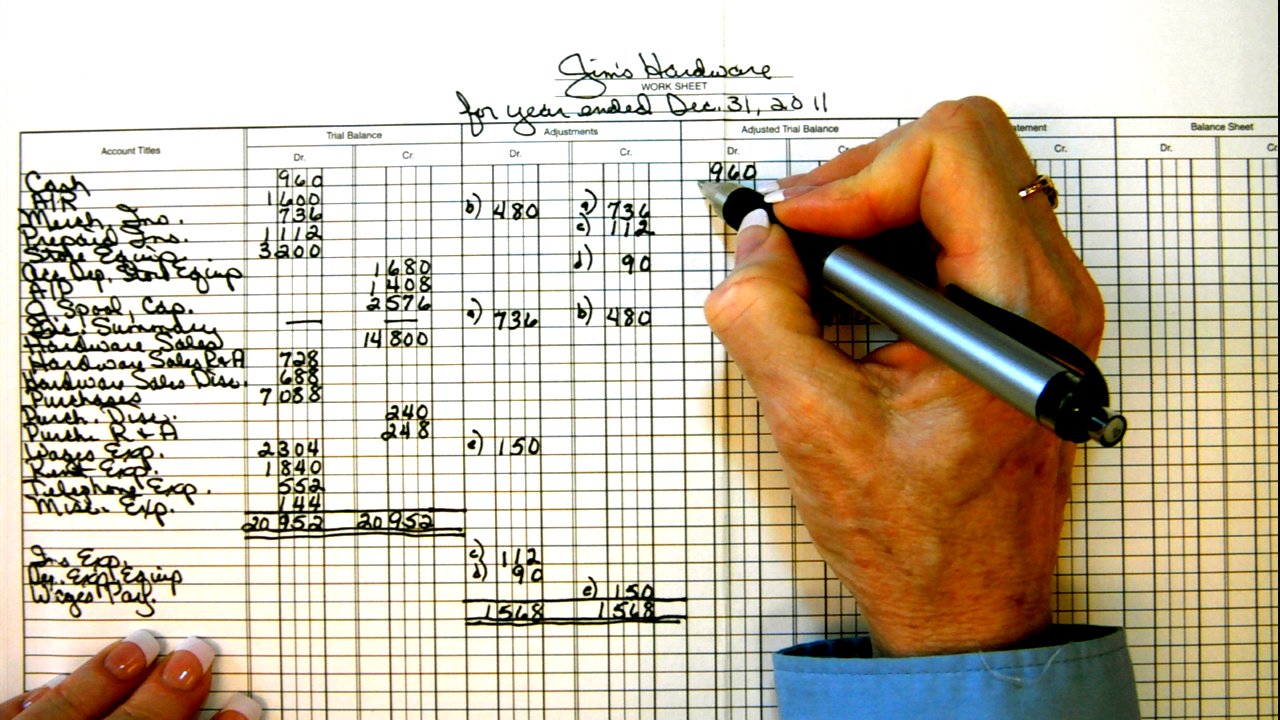 Jim's Hardware
WORK SHEET
for year ended Dec. 31, 2011
Account Titles Trial Balance Adjustments Adjusted Trial Balance tement Balance Sheet
Dr. Cr. Dr. Cr. Dr. Cr. Dr. C
Cash 960 960
A/R 1600
Merch. Ins. 736 b) 480 a) 736
Prepaid Ins. 1112 c) 112
Store Equip. 3200
Acc. Dep. Store Equip 1680 d) 90
A/P 1408
O. Spool, Cap. 2576
Summary — — a) 736 b) 480
Hardware Sales 14800
Hardware Sales R&A 728
Hardware Sales Disc. 688
Purchases 7088
Purch. Disc. 240
Purch. R & A 248
Wages Exp. 2304 e) 150
Rent Exp. 1840
Telephone Exp. 552
Misc. Exp. 144
20952 20952
Ins Exp. c) 112
Dep. Exp. Equip d) 90
Wages Pay. e) 150
1568 1568